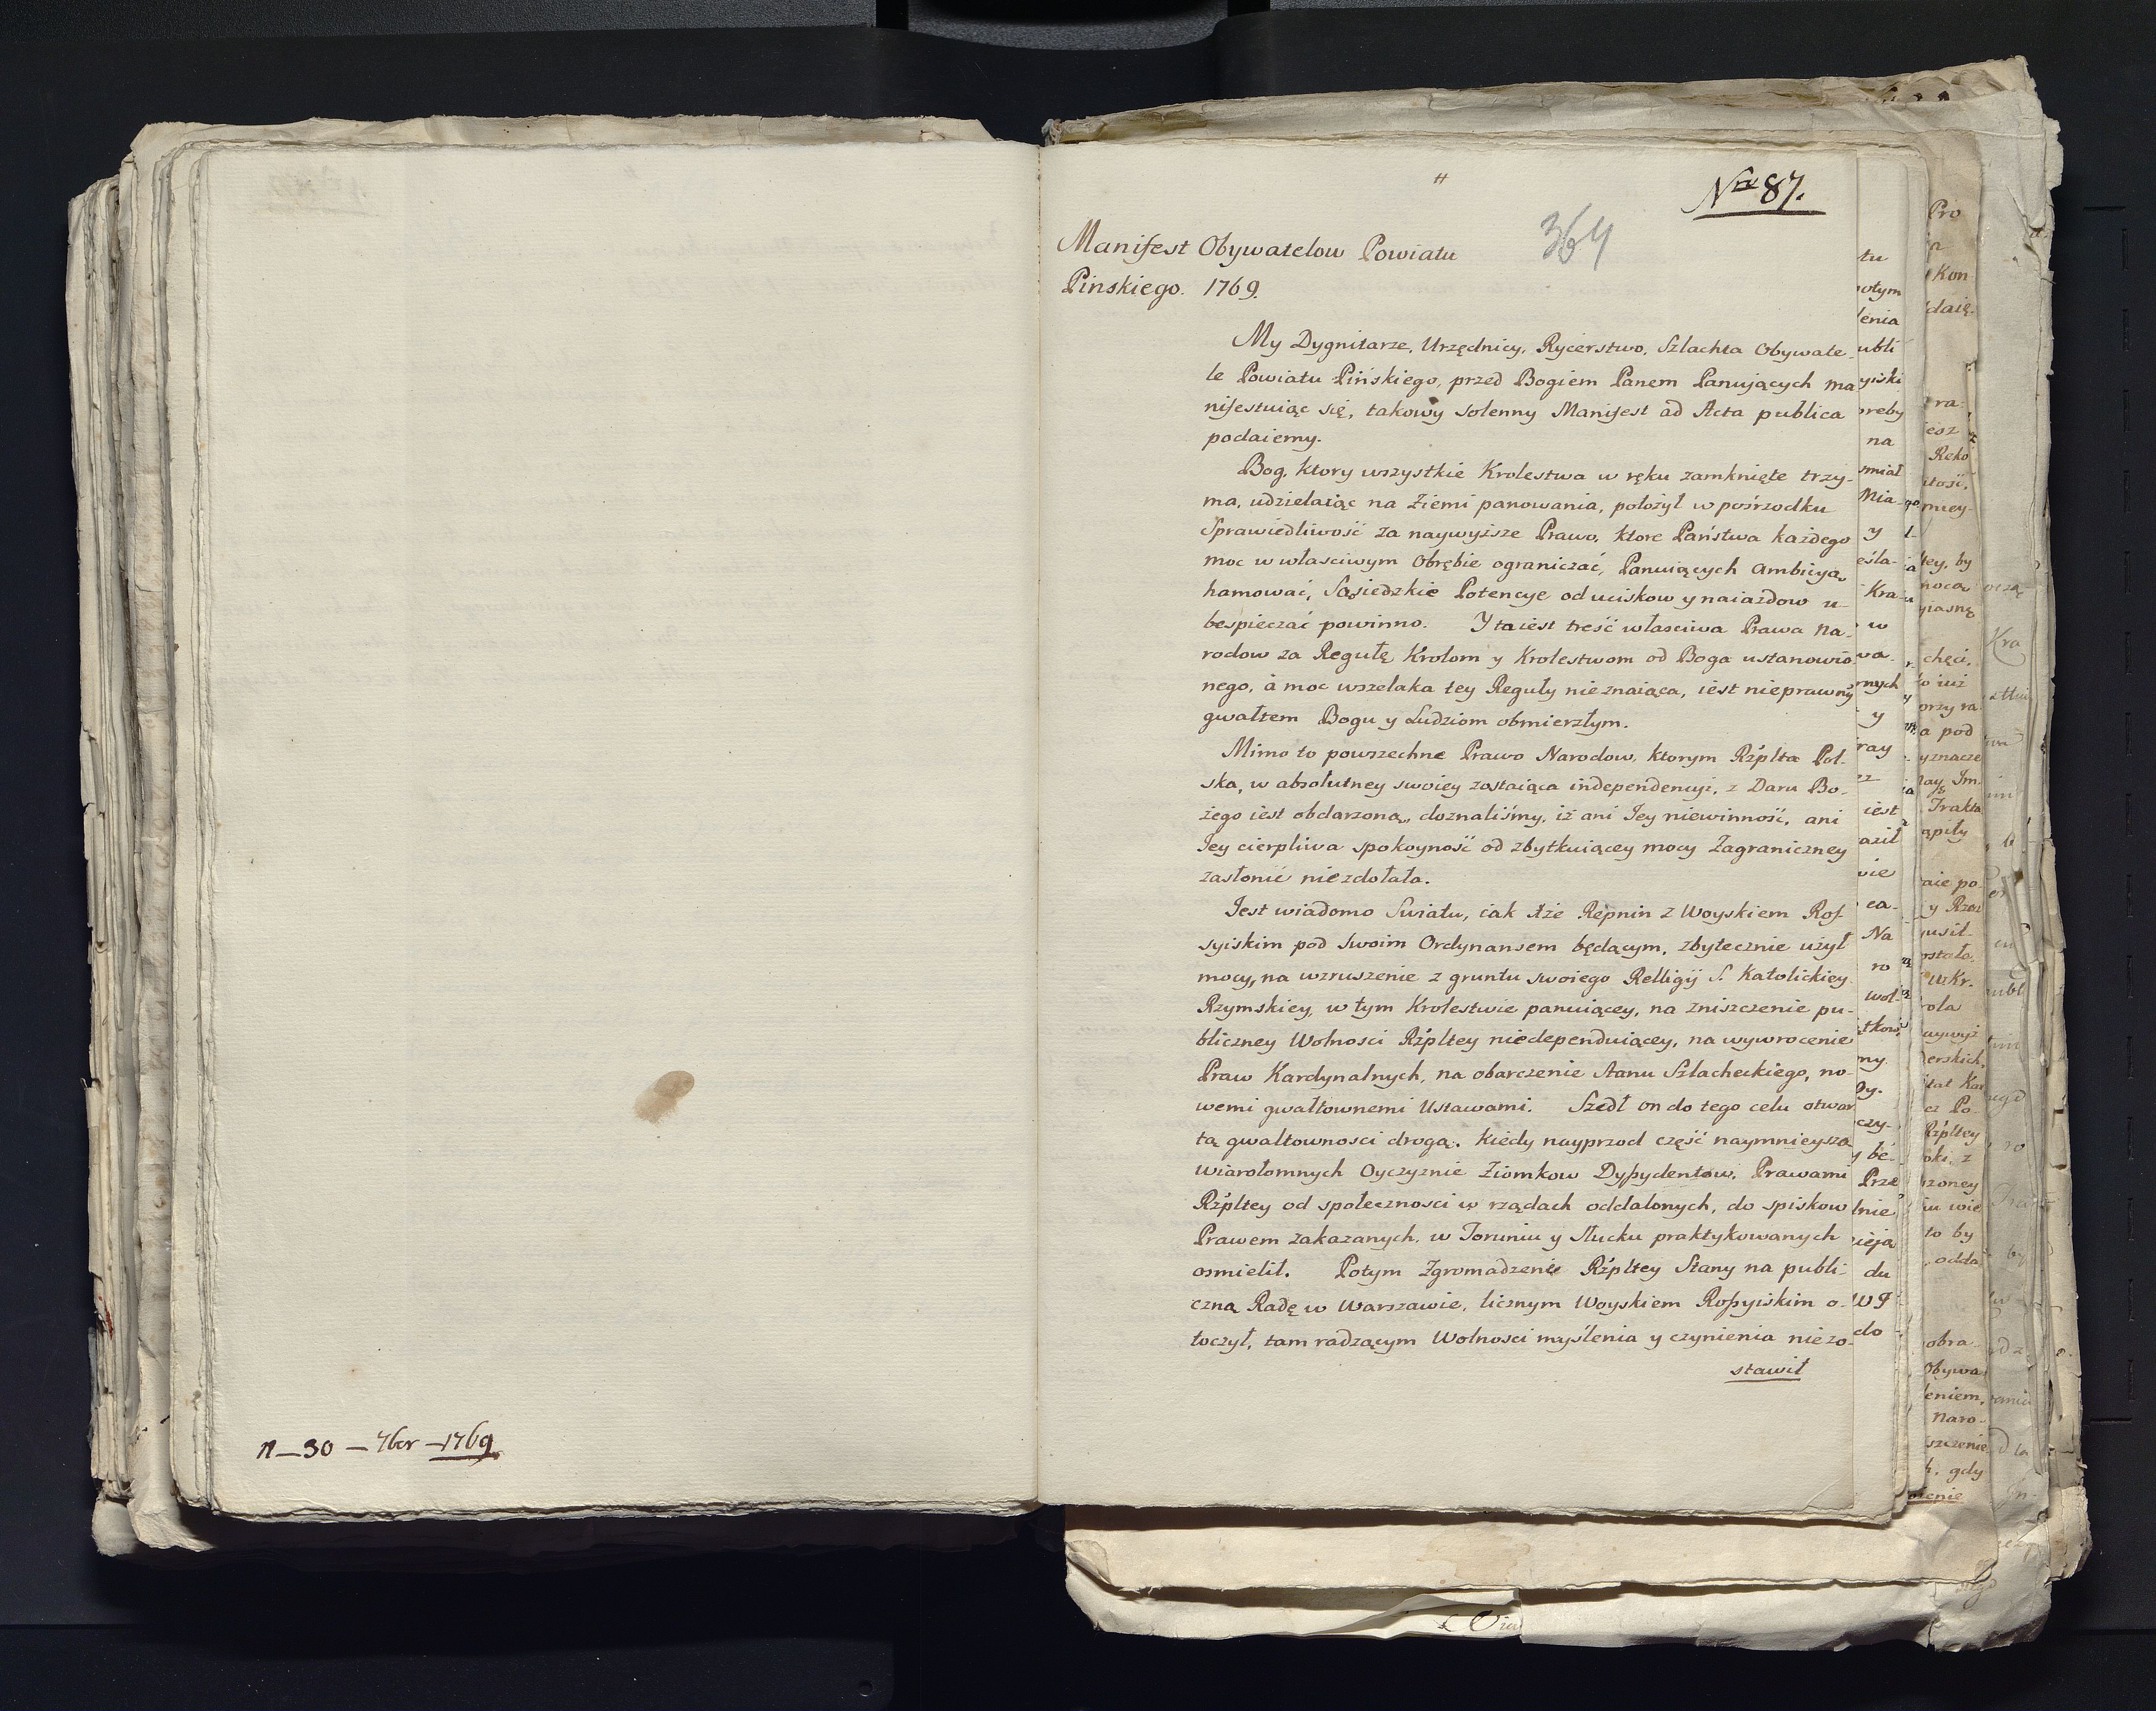 n_30_7ber_1769
Nro 87.
364
Manifest Obywatelow Powiatu
Pinskiego. 1769.
My Dygnitarze, Urzędnicy, Rycerstwo, Szlachta Obywate-
le Powiatu Pińskiego, przed Bogiem Panem Panujących ma
nifestuiąc się, takowy solenny Manifest ad Acta publica
podaiemy.
Bog, ktory wszystkie Krolestwa w ręku zamknięte trzy-
ma, udzielaiąc na Ziemi panowania, położył w pośrzodku
Sprawiedliwość za naywyższe Prawo, ktore Państwa każdego
moc w własciwym Obrębie ograniczać, Panuiących ambicyą
hamować, Sąsiedzkie Potencye od uciskow y naiazdow u-
bespieczać powinno. Y ta iest treść własciwa Prawa Na-
rodow za Regułę Krolom y Krolestwom od Boga ustanowio
nego, à moc wszelaka tey Reguły nieznaiąca, iest nieprawnÿ
gwałtem Bogu y Ludziom obmierzłym.
Mimo to powszechne Prawo Narodow, ktorym Rzplta Pol-
ska, w absolutney swoiey zostaiąca independencyi, z Daru Bo-
żego iest obdarzoną, doznaliśmy, iż ani Jey niewinność, ani
Jey cierpliwa spokoyność od zbytkuiącey mocy Zagraniczney
zasłonić niezdołała.
Jest wiadomo Swiatu, iak Xże Repnin z Woyskiem Ros-
syiskim pod swoim Ordynansem będącym, zbytecznie użył
mocy, na wzruszenie z gruntu swoiego Relligij S. Katolickiey
Rzymskiey, w tym Krolestwie panuiącey, na zniszczenie pu-
bliczney Wolnosci Rzpltey niedependuiącey, na wywrocenie
Praw Kardynalnych, na obarczenie Stanu Szlacheckiego, no-
wemi gwałtownemi Ustawami. Szedł on do tego celu otwar
tą gwałtownosci drogą. Kiedy nayprzod część naymnieyszą
wiarołomnych Oyczyznie Ziomkow Dyssydentow, Prawami
Rzpltey od społecznosci w rządach oddalonych, do spiskow
Prawem zakazanych, w Toruniu y Słucku praktykowanych
osmielił. Potym Zgromadzenie Rzpltey Stany na publi-
czną Radę w Warszawie, licznym Woyskiem Rossyiskim o-
toczył, tam radzącym Wolnosci myślenia y czynienia niezo-
stawił